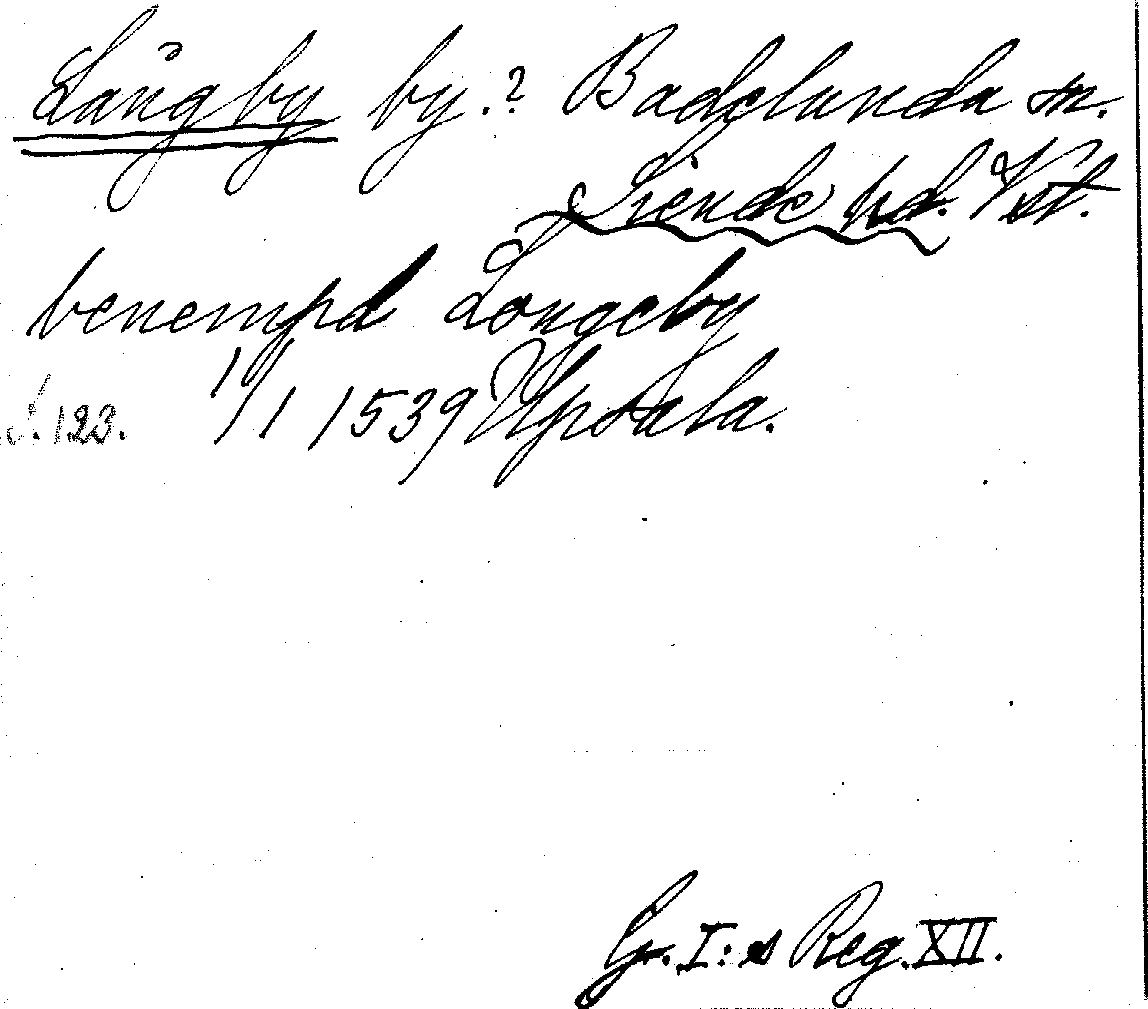 Långby by.? Badelunda sn.
Siende hd. Vstl.
benempd Longeby
s. 123. 1/1 1539 Upsala.
G. I:s Reg. XII.